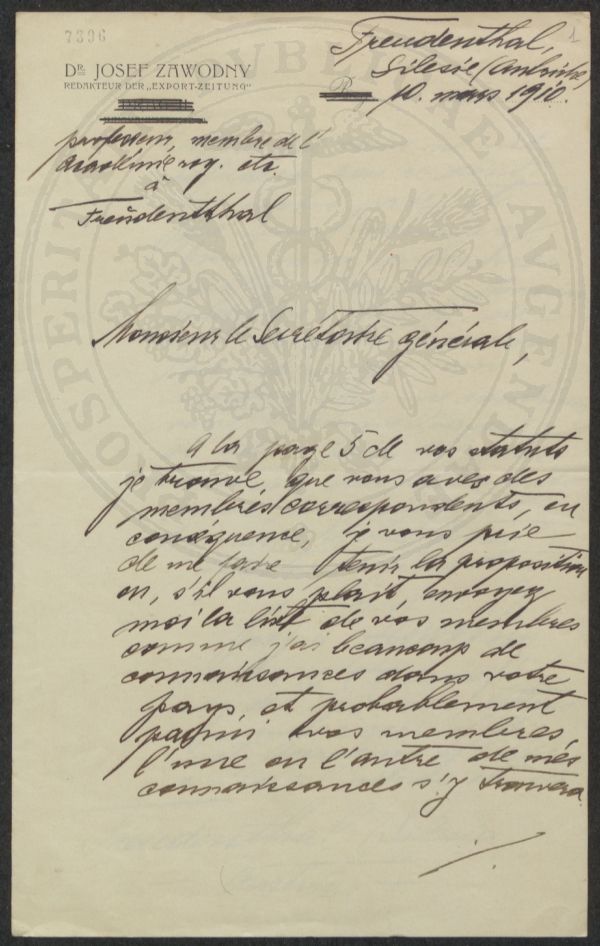 7396
1
Freudenthal,
Silésie (Autriche)
10. mars 1910.
DR. JOSEF ZAWODNY
REDAKTEUR DER „EXPORT-ZEITUNG“
professeur, membre de l'
Académie roy. etc.
à
Freudenthal
Monsieur le Secrétaire générale,
A la page 5 de vos statuts
je trouve, que vous avez des
membres correspondents, en
conséquence, je vous prie
de me faire tenir la proposition
ou, s'il vous plait, envoyez
moi la list de vos membres
comme j'ai beaucoup de
connaissances dans votre
pays, et probablement
parmi vos membres,
l'une ou l'autre de mes
connaissances s'y trouvera